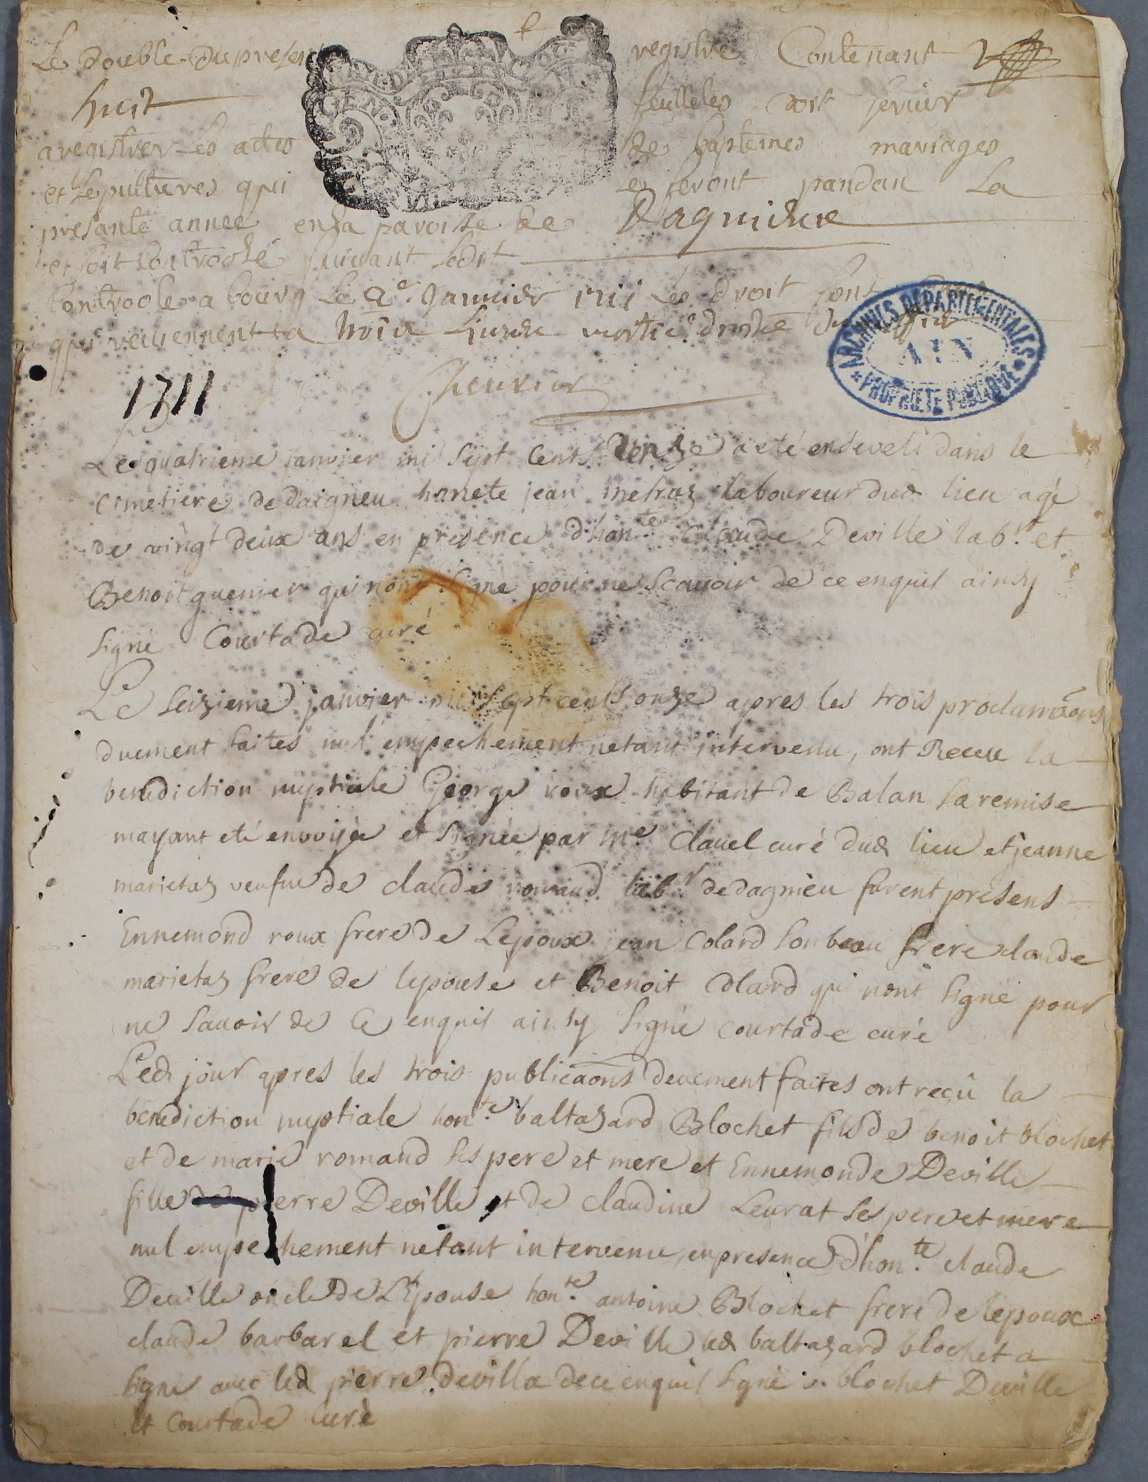 Le double du presen registre Contenant
huit feuillets doit servir
a registrer les actes de baptemes mariages
et sepultures qui se feront pandan La
presante année en la paroisse de Dagnieu
et soit controolé suivant ledit
Controole a bourg Le 2e Janvier 1711 Les droit sont
ARCHIVES DÉPARTEMENTALES
AIN
PROPRIÉTÉ PUBLIQUE
1711
Le quatrieme janvier mil sept cents onze a eté enseveli dans le
cimetiere de daigneu honete jean metras laboureur dud lieu agé
de vingt deux ans en presence d'honte claude Deville labr et
Benoit guenier qui nont signé pour ne scavoir de ce enquis ainsy
signé Courtade curé
Le seizieme janvier mil sept cents onze apres les trois proclamãons
duement faites nul empechement netant intervenu, ont Receu la
benediction nuptiale George roux habitant de Balan sa remise
mayant eté envoiyée et signée par me clavel curé dud lieu et jeanne
marietas veufve de claude romand labr de dagnieu furent présens
Ennemond roux frere de Lepoux jean Colard son beau frere claude
marietas frere de lepouse et Benoit Colard qui nont signé pour
ne savoir de ce enquis ainsy signé courtade curé
Led jour apres les trois publicãons deuement faites ont reçû la
bénédiction nuptiale honte baltazard Blochet fils de benoit blochet
et de marie romand ses pere et mere et Ennemonde Deville
fille de pierre Deville et de claudine Leurat ses pere et mere
nul empechement netant intervenu, en presence d'honte claude
Deville oncle de L'Epouse honte antoine Blochet frere de lepoux
claude barbarel et pierre Deville led baltazard blochet a
signé avec led pierre deville de ce enquis signé b. blochet Deville
et Courtade curé